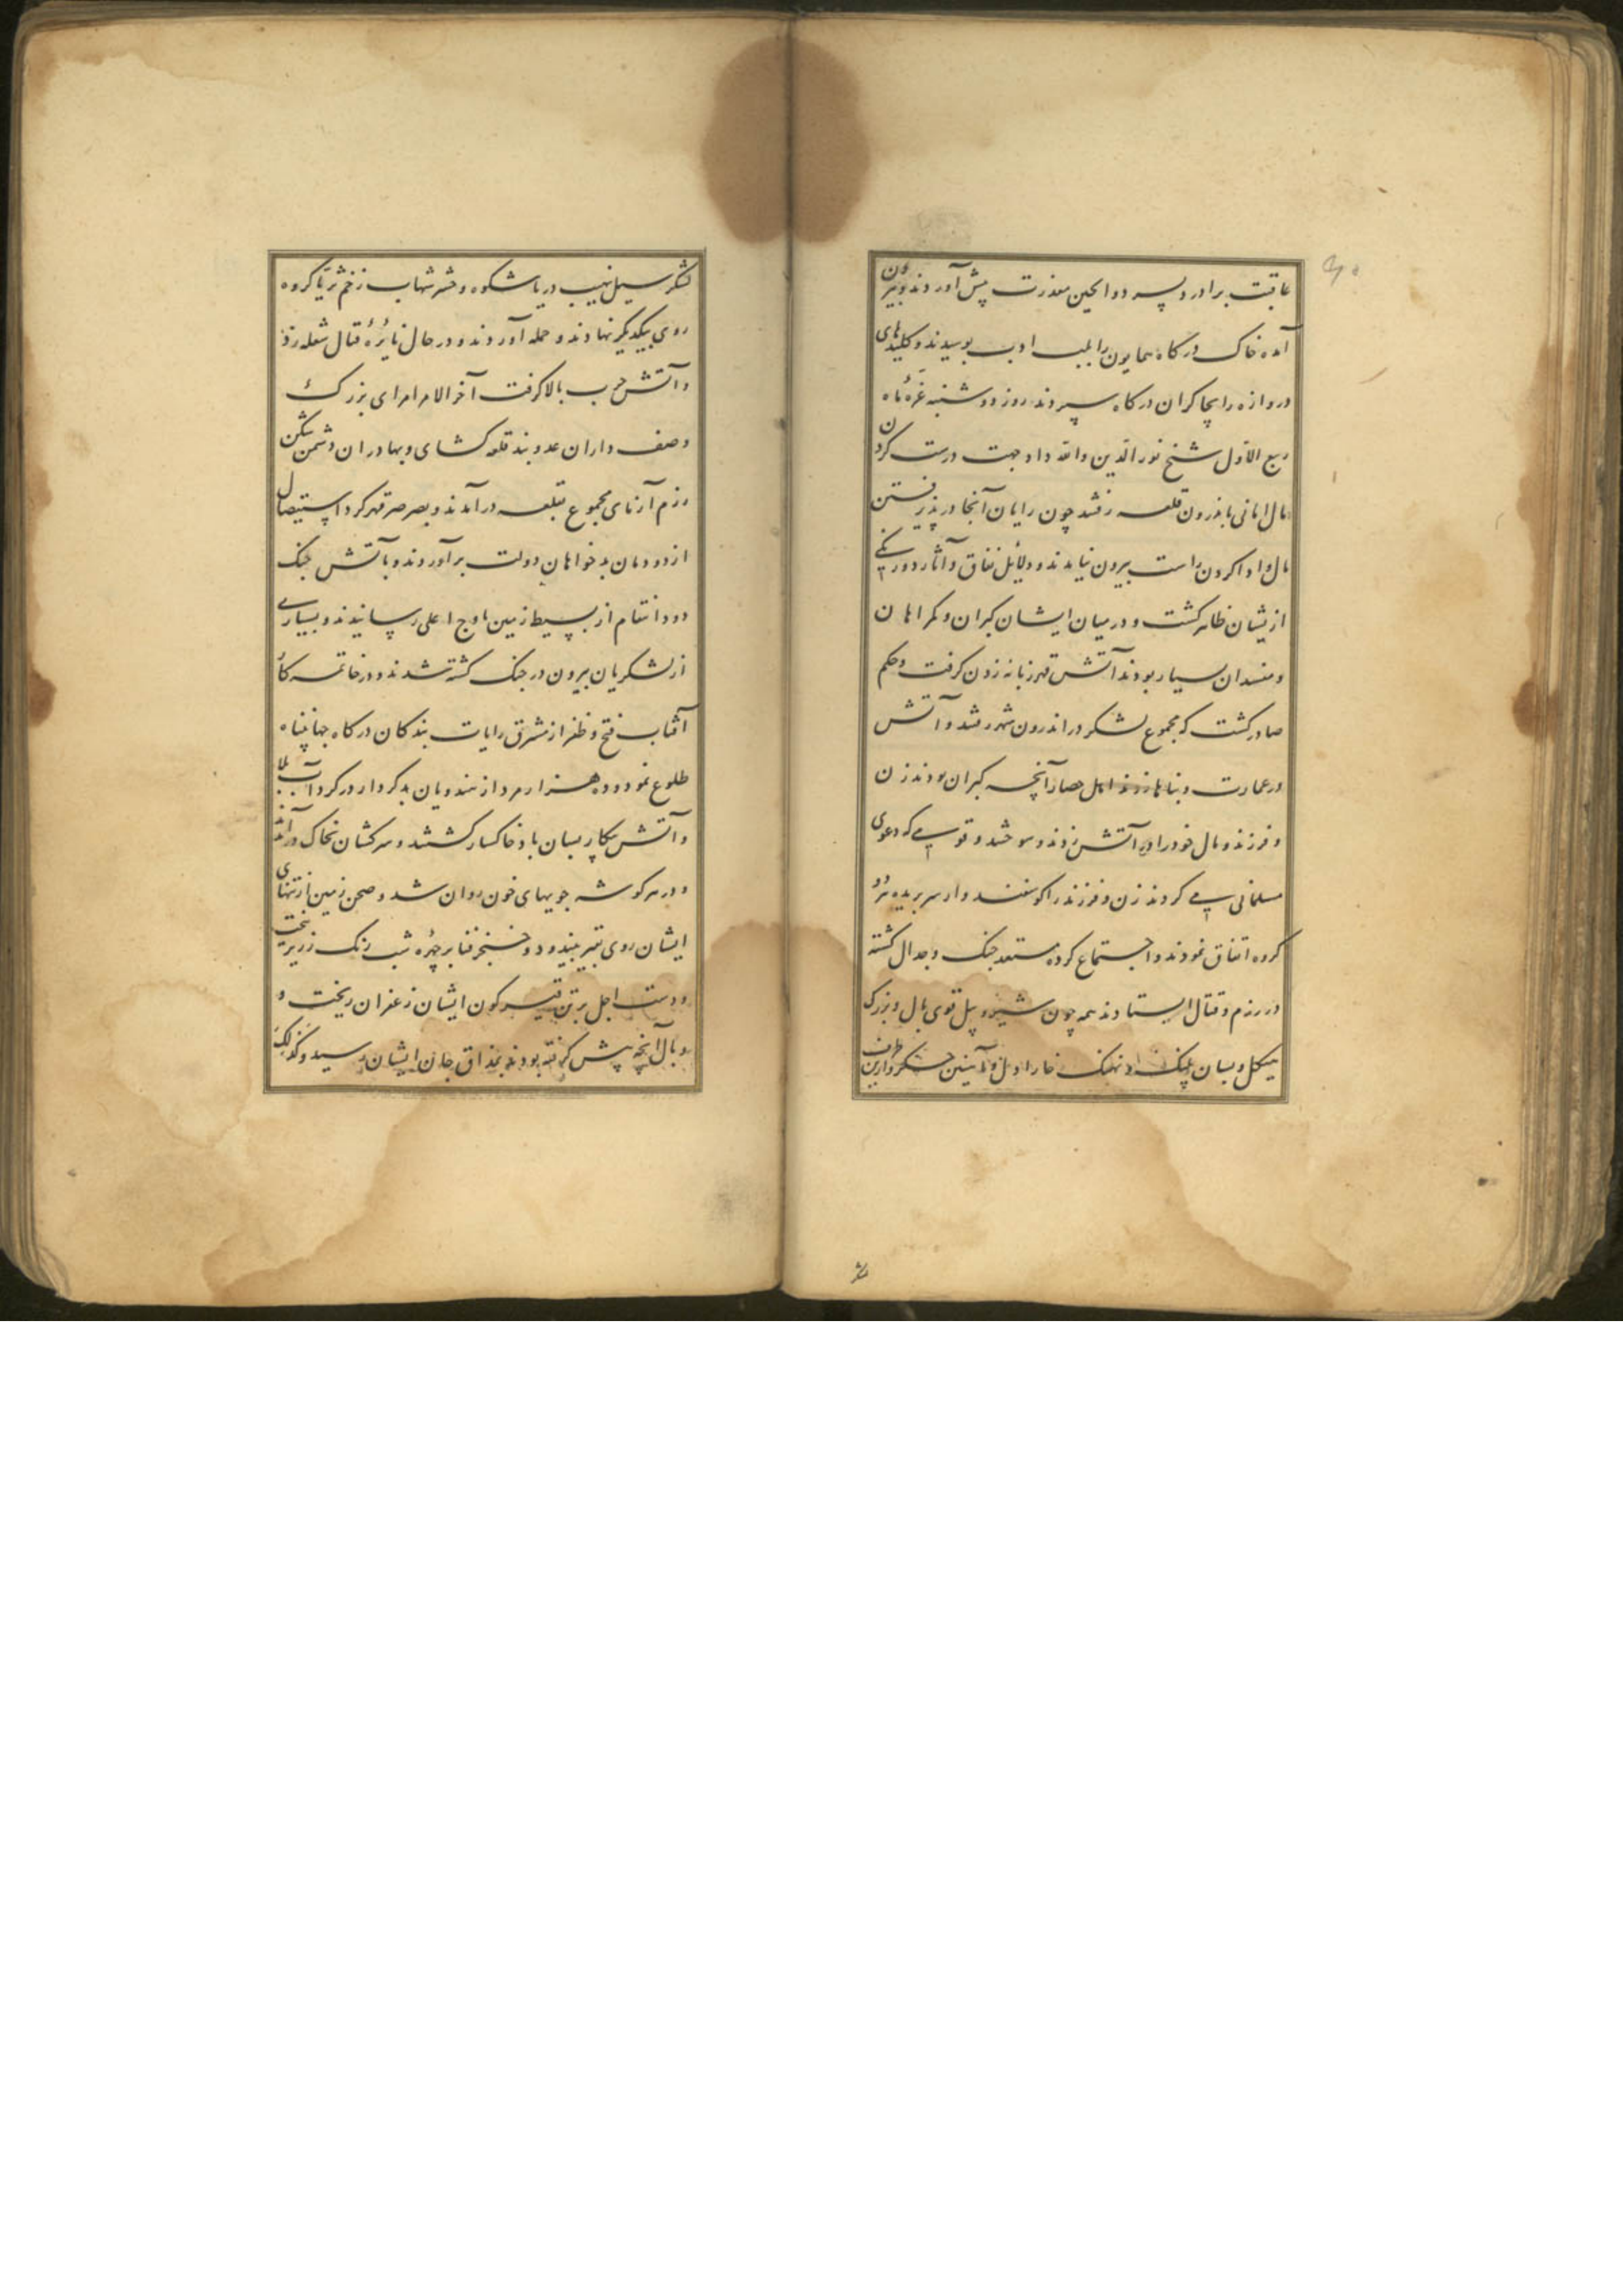 عاقبت برادر و پسر دولچین معذرت پیش آوردند و بیرون
آمده خاک درگاه همایون را بلب ادب بوسیدند و کلیدهای
دروازه را بچاکران درگاه سپردند روز دوشنبه غرهٔ ماه
ربیع الاول شیخ نور الدین و الله داد جهت درست کردن
مال امانی باندرون قلعه رفتند چون رایان آنجا در پذیرفتن
مال و ادا کردن راست بیرون نیامدند و دلائل نفاق و آثار دورنگی
ازیشان ظاهر کشت و در میان ایشان کبران و کمراهان
و مفسدان بسیار بودند آتش قهر زبانه زدن کرفت و حکم
صادر کشت که مجموع لشکر در اندرون شهر رفتند و آتش
در عمارت و بناها زدند اهل حصار آنچه کبران بودند زن
و فرزند و مال خود را در آتش زدند و سوختند و قومی که دعوی
مسلمانی می کردند زن و فرزند را کوسفند وار سر بریده هر دو
کروه اتفاق نمودند و اجتماع کرده مستعد جنک و جدال کشته
در رزم و قتال ایستادند همه چون شیر و پیل قوی یال و بزرک
هیکل و بسان پلنک و نهنک خارا دل و آهنین جنکر و ازین طرف
لشکر سیل نهیب دریا شکوه و حشر شهاب زخم ثریا کروه
روی بیکدیکر نهادند و حمله آوردند و در حال نایرهٔ قتال شعله زد
و آتش حرب بالا کرفت آخر الامر امرای بزرک
و صف داران عدوبند قلعه کشای و بهادران دشمن شکن
رزم آزمای مجموع بقلعه در آمدند و بصرصر قهر کرد استیصال
از دودمان بدخواهان دولت برآوردند و بآتش جنک
دود انتقام از بسیط زمین باوج اعلی رسانیدند و بسیاری
از لشکریان بیرون در جنک کشته شدند و در خاتمه کار
آفتاب فتح و ظفر از مشرق رایات بندکان درکاه جهانپناه
طلوع نمود و ده هزار مرد از هندویان بدکردار در کرداب بلا
و آتش پیکار بسان باد خاکسار کشتند و سرکشان بخاک درآمدند
و در هر کوشه جویهای خون روان شد و صحن زمین از تنهای
ایشان روی بقیر بیندود و خنجر فنا بر چهرهٔ شب رنک زریر بیخت
و دست اجل بر تن قیرکون ایشان زعفران ریخت و
وبال آنچه پیش کرفته بودند بمذاق جان ایشان رسید و کذلک